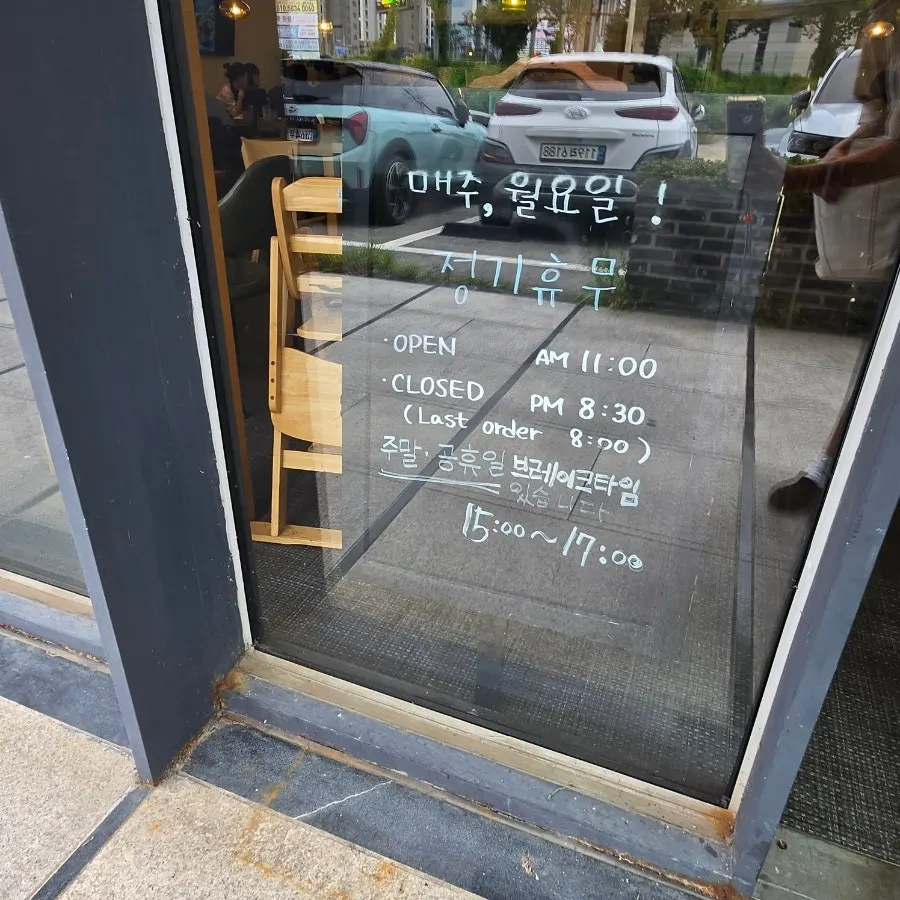 매주, 월요일 !
정기휴무
· OPEN AM 11:00
· CLOSED PM 8:30
(Last order 8:00)
주말, 공휴일 브레이크타임
있습니다
15:00~17:00